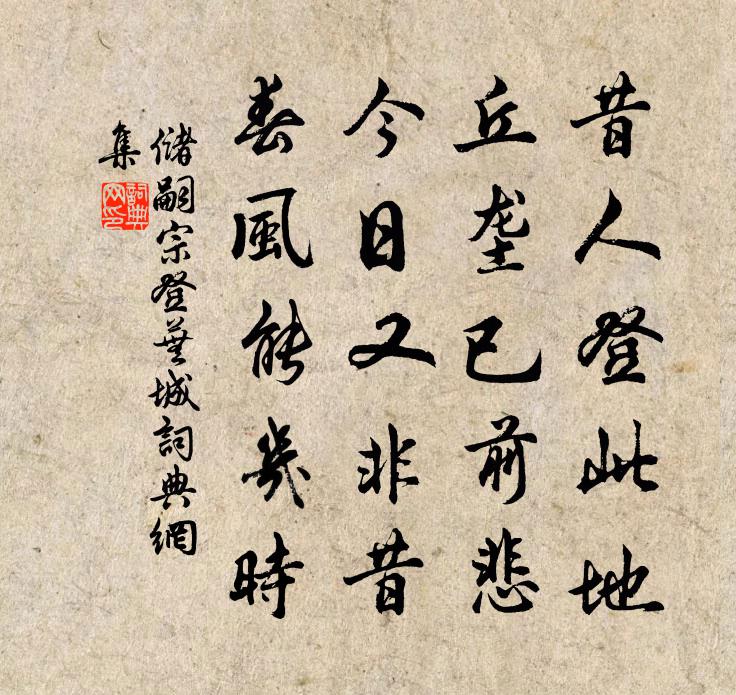 昔人登此地
丘垄已前悲
今日又非昔
春風能幾時
儲嗣宗登蕪城詞典網
集
詞典
网印